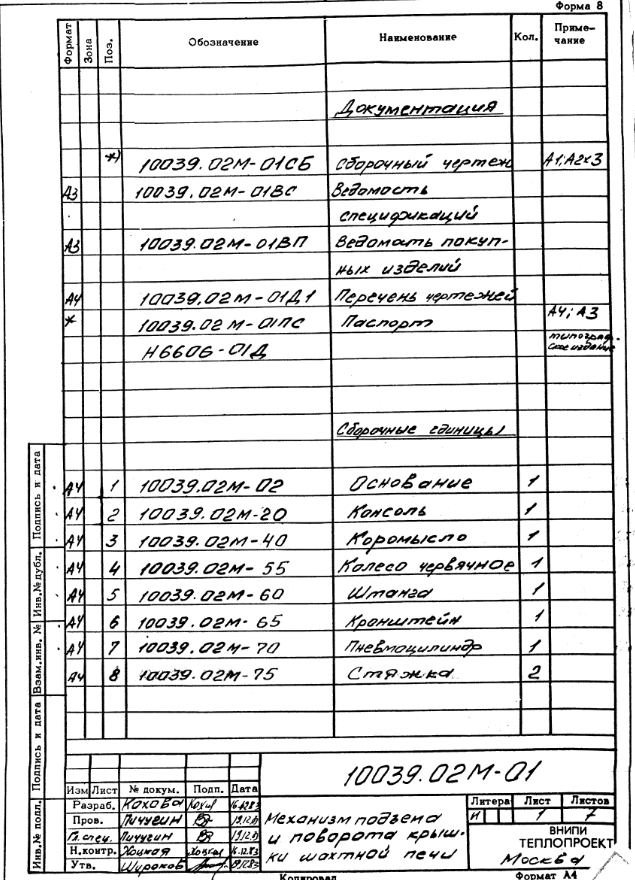 Форма 8
Формат Зона Поз. Обозначение Наименование Кол. Приме-
чание
Документация
*) 10039.02М-01СБ Сборочный чертеж А1,А2х3
А3 10039.02М-01ВС Ведомость
спецификаций
А3 10039.02М-01ВП Ведомость покуп-
ных изделий
А4 10039.02М-01Д1 Перечень чертежей
* 10039.02М-01ПС Паспорт А4; А3
Н6606-01Д
Сборочные единицы
А4 1 10039.02М-02 Основание 1
А4 2 10039.02М-20 Консоль 1
А4 3 10039.02М-40 Коромысло 1
А4 4 10039.02М-55 Колесо червячное 1
А4 5 10039.02М-60 Штанга 1
А4 6 10039.02М-65 Кронштейн 1
А4 7 10039.02М-70 Пневмоцилиндр 1
А4 8 10039.02М-75 Стяжка 2
Инв.№ подл. Подпись и дата Взам.инв. № Инв.№ дубл. Подпись и дата
10039.02М-01
Изм Лист № докум. Подп. Дата
Разраб. Кохова
Пров. Пичугин
Гл. спец. Пичугин
Н.контр.
Утв.
Механизм подъема
и поворота крыш-
ки шахтной печи
Литера Лист Листов
И 1 7
ВНИПИ
ТЕПЛОПРОЕКТ
Москва
Копировал Формат А4